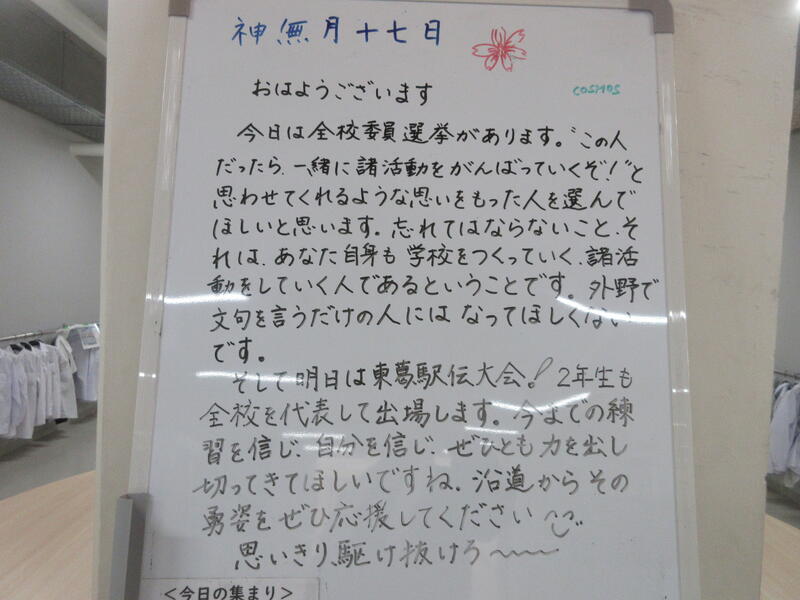 神無月十七日
COSMOS
おはようございます
今日は全校委員選挙があります。"この人
だったら、一緒に諸活動をがんばっていくぞ!"と
思わせてくれるような思いをもった人を選んで
ほしいと思います。忘れてはならないこと、そ
れは、あなた自身も学校をつくっていく、諸活
動をしていく人であるということです。外野で
文句を言うだけの人にはなってほしくない
です。
そして明日は東葛駅伝大会!2年生も
全校を代表して出場します。今までの練
習を信じ、自分を信じ、ぜひとも力を出し
切ってきてほしいですね。沿道からその
勇姿をぜひ応援してください
思いきり駆け抜けろ〜〜
<今日の集まり>